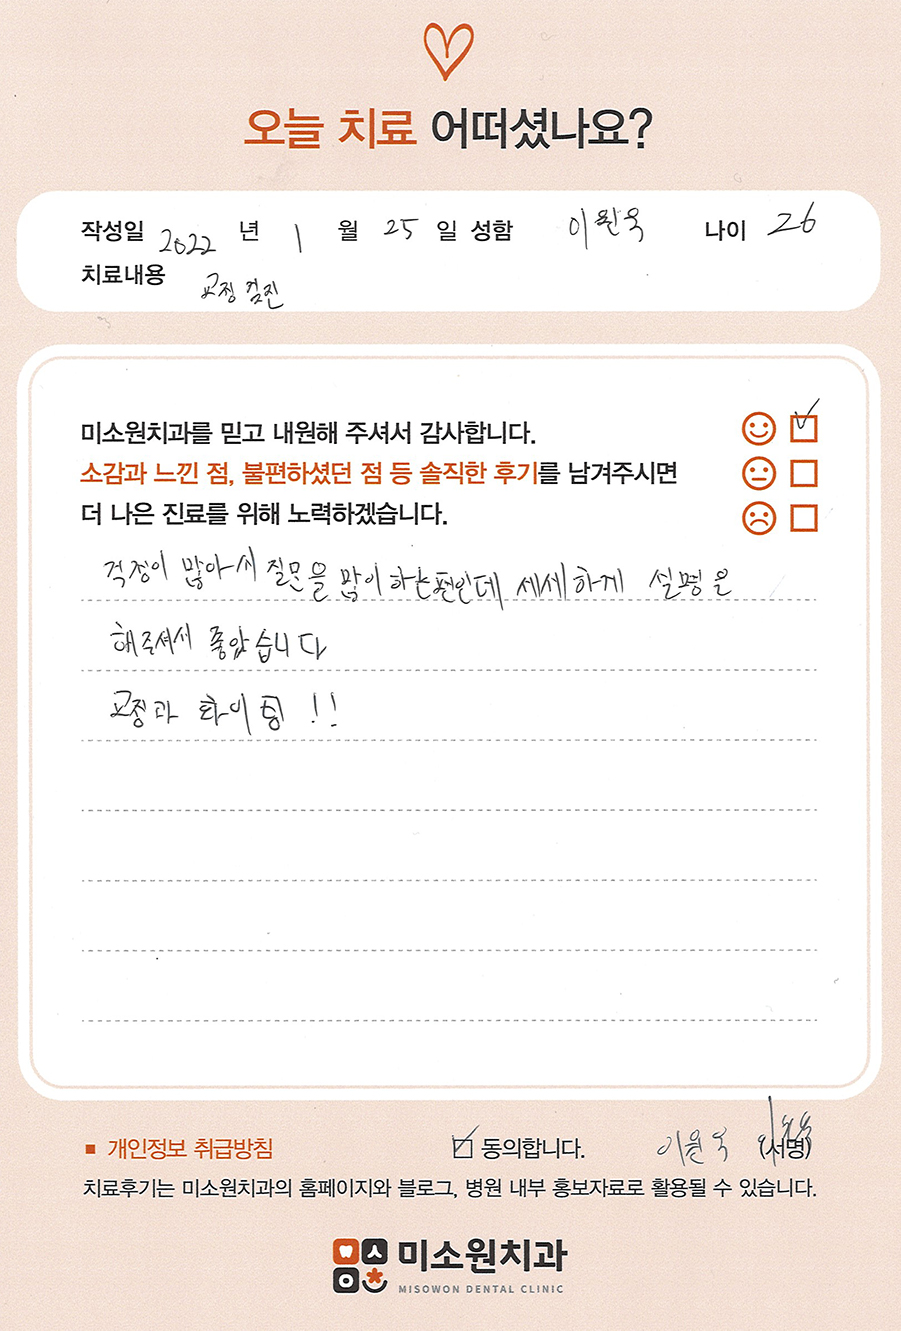 오늘 치료 어떠셨나요?
작성일 2022 년 1 월 25 일 성함 이원욱 나이 26
치료내용 교정 검진
미소원치과를 믿고 내원해 주셔서 감사합니다.
소감과 느낀 점, 불편하셨던 점 등 솔직한 후기를 남겨주시면
더 나은 진료를 위해 노력하겠습니다.
걱정이 많아서 질문을 많이 하는편인데 세세하게 설명을
해주셔서 좋았습니다
교정과 화이팅 !!
개인정보 취급방침 동의합니다. 이원욱 (서명)
치료후기는 미소원치과의 홈페이지와 블로그, 병원 내부 홍보자료로 활용될 수 있습니다.
미소원치과
MISOWON DENTAL CLINIC